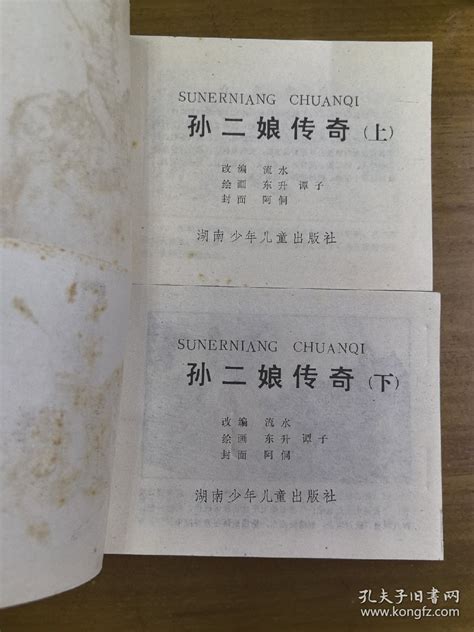 SUNERNIANG CHUANQI
孙二娘传奇(上)
改编 流水
绘画 东升 谭子
封面 阿侗
湖南少年儿童出版社
SUNERNIANG CHUANQI
孙二娘传奇(下)
改编 流水
绘画 东升 谭子
封面 阿侗
湖南少年儿童出版社
孔夫子旧书网
www.kongfz.com